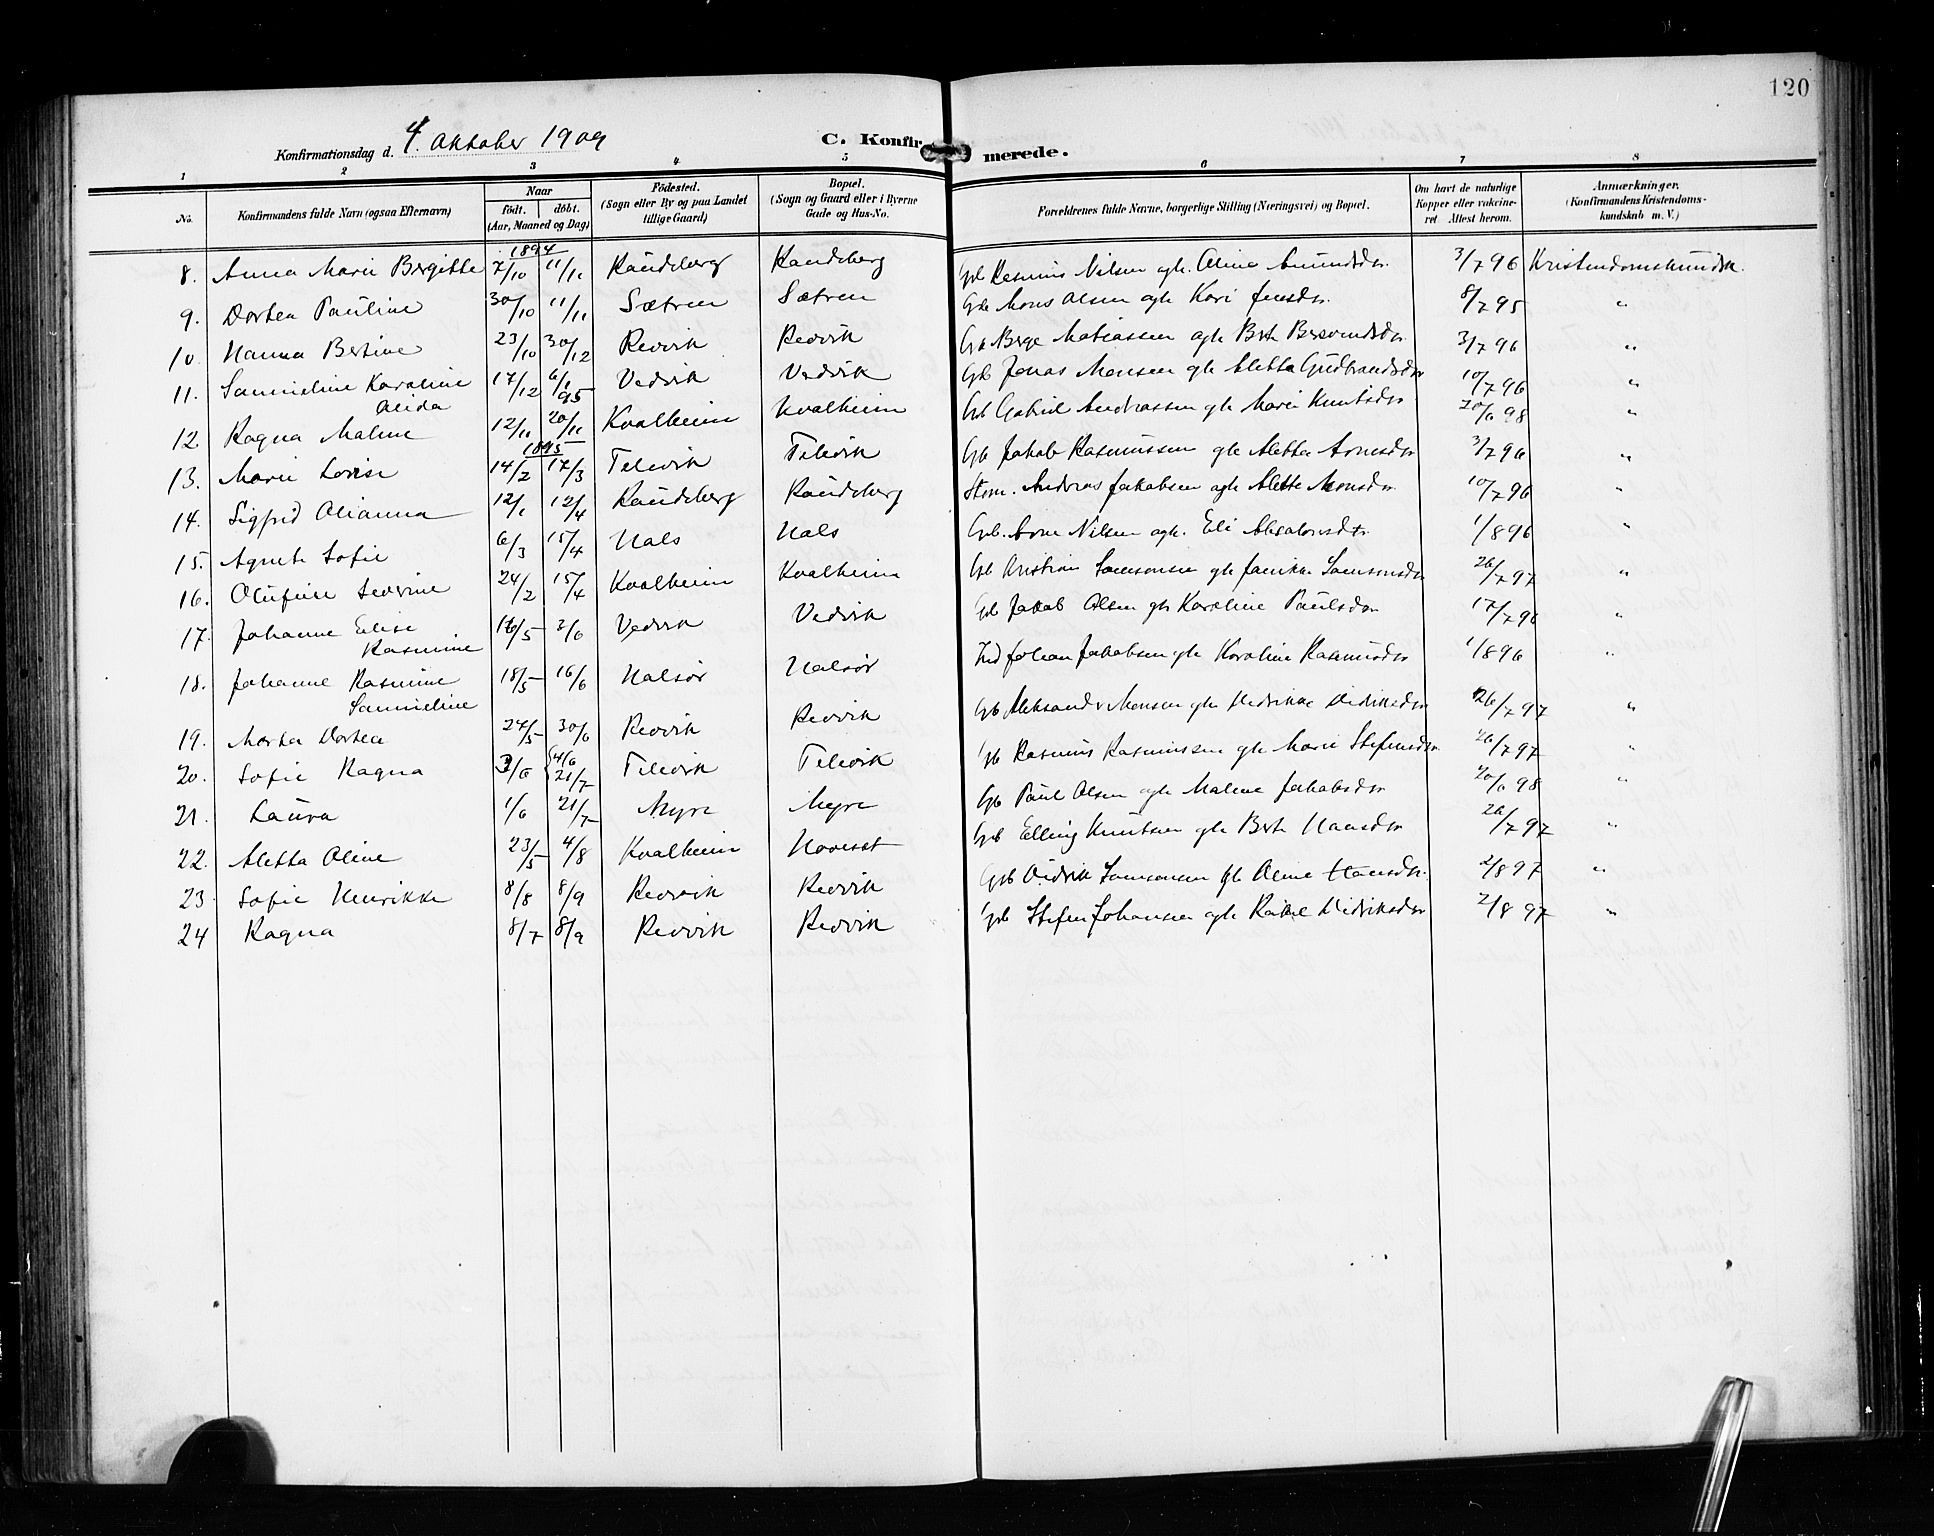 120
Konfirmationsdag d. 4. Oktober 1909
C. Konfirmerede.
1 2 3 4 5 6 7 8
No. Konfirmandens fulde Navn (ogsaa Efternavn) Naar født. døbt. (Aar, Maaned og Dag) Fødested. (Sogn eller By og paa Landet tillige Gaard) Bopæl. (Sogn og Gaard eller i Byerne Gade og Hus-No. Forældrenes fulde Navne, borgerlige Stilling (Næringsvei) og Bopæl. Om havt de naturlige Kopper eller vaccineret. Attest herom. Anmærkninger. (Konfirmandens Kristendomskundskab m. V.)
1894
8. Anna Marie Bergitte 7/10 11/11 Raudeberg Raudeberg Gb Rasmus Nilsen ogh. Oline Amundsdr 3/7 96 Kristendomskundsk.
9. Dortea Pauline 30/10 11/11 Sætren Sætren Gb Mons Olsen ogh Kari Jensdr 8/7 95 "
10. Hanna Bertine 23/10 30/12 Revvik Revvik Gb Berge Matiassen ogh Brt 3/7 96 "
11. Samueline Karoline Alida 17/12 6/1 95 Vedvik Vedvik Gb Jonas Monsen gh Aletta Gudbrandsdr 10/7 96 "
12. Ragna Malene 12/11 20/11 Kvalheim Kvalheim Gb Gabriel Andreassen gh Marie Knutsdr 20/6 98 "
1895
13. Marie Lovise 14/2 17/3 Tilevik Tilevik Gb Jakob Rasmussen gh Aletta Arnesdr 3/7 96 "
14. Sigfrid Olianna 12/1 12/4 Raudeberg Raudeberg Andreas Jakobsen ogh Alette Monsdr 10/7 96 "
15. Agnete Sofie 6/3 15/4 Hals Hals Gb. Arne Nilsen ogh. Eli Absalonsdr 1/8 96 "
16. Olufine Severine 24/2 15/4 Kvalheim Kvalheim Gb Kristian Samsonsen gh Janikke Samsonsdr 26/7 97 "
17. Johanne Elise Rasmine 16/5 3/6 Vedvik Vedvik Gb Jakob Olsen gh Karoline Paulsdr 17/7 96 "
18. Johanne Rasmine Samueline 18/5 16/6 Halsør Halsør Ind Johan Jakobsen gh Karoline Rasmusdr 1/8 96 "
19. Marta Dortea 24/5 30/6 Revvik Revvik Gb Aleksander Monsen gh Hedrikke Didriksdr 26/7 97 "
20. Sofie Ragna 3/6 21/7 Tilevik Tilevik Gb Rasmus Rasmussen gh Marie Stefensdr 26/7 97 "
21. Laura 1/6 21/7 Myre Myre Gb Paul Olsen ogh Malene Jakobsdr 20/6 98 "
22. Aletta Oline 23/5 4/8 Kvalheim Gb Elling Knutsen gh Brt Hansdr 26/7 97 "
23. Sofie Henrikke 8/8 8/9 Revvik Revvik Gb Didrik Samsonsen gh Oline Hansdr. 2/8 97 "
24 Ragna 8/7 8/9 Revvik Revvik Gb Stefen Johansen ogh Rakel Didriksdr 2/8 97 "